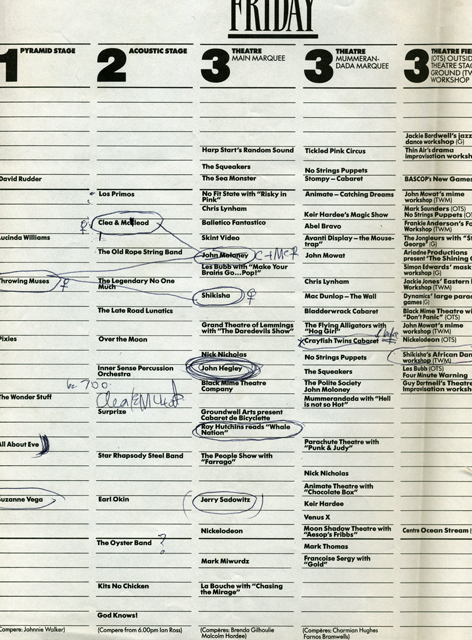 FRIDAY
1 PYRAMID STAGE
David Rudder
Lucinda Williams
Throwing Muses
Pixies
The Wonder Stuff
All About Eve
Suzanne Vega
(Compere: Johnnie Walker)
2 ACOUSTIC STAGE
Los Primos
Clea & McLeod
The Old Rope String Band
The Legendary No One
Much
The Late Road Lunatics
Over the Moon
Inner Sense Percussion
Orchestra
7.00
Clea & McLeod
Surprize
Star Rhapsody Steel Band
Earl Okin
The Oyster Band ?
Kits No Chicken
God Knows!
(Compere from 6.00pm Ian Ross)
3 THEATRE
MAIN MARQUEE
Harp Start's Random Sound
The Squeakers
The Sea Monster
No Fit State with "Risky in
Pink"
Chris Lynham
Balletico Fantastico
Skint Video
John Moloney C+McL
Les Bubb with "Make Your
Brains Go...Pop!"
Shikisha ♀
Grand Theatre of Lemmings
with "The Daredevils Show"
Nick Nicholas
John Hegley
Black Mime Theatre
Company
Groundwell Arts present
Cabaret de Bicyclette
Roy Hutchins reads "Whale
Nation"
The People Show with
"Farrago"
Jerry Sadowitz
Nickelodeon
Mark Miwurdz
La Bouche with "Chasing
the Mirage"
(Compères: Brenda Gilhoulie
Malcolm Hardee)
3 THEATRE
MUMMERAN-
DADA MARQUEE
Tickled Pink Circus
No Strings Puppets
Stompy – Cabaret
Animate – Catching Dreams
Keir Hardee's Magic Show
Abel Bravo
Avanti Display – the Mouse-
trap"
John Mowat
Chris Lynham
Mac Dunlop – The Wall
Bladderwrack Cabaret
The Flying Alligators with
"Hog Girl"
x Crayfish Twins Cabaret
No Strings Puppets
The Squeakers
The Polite Society
John Moloney
Mummerandada with "Hell
is not so Hot"
Parachute Theatre with
"Punk & Judy"
Nick Nicholas
Animate Theatre with
"Chocolate Box"
Keir Hardee
Venus X
Moon Shadow Theatre with
"Aesop's Fribbs"
Mark Thomas
Francoise Sergy with
"Gold"
(Compères: Charmian Hughes
Farnos Bramwells)
3 THEATRE FIE
(OTS) OUTSID
THEATRE STAG
GROUND (TW
WORKSHOP
Jackie Bardwell's jazz
dance workshop (G)
Thin Air's drama
Improvisation worksh
BASCOP's New Games
John Mowat's mime
workshop (TWM)
Mark Saunders (OTS)
No Strings Puppets (O
Frankie Anderson's Fo
Workshop (TWM)
The Jongleurs with "S
George" (G)
Ariadne Productions
present "The Shining G
Simon Edwards' mask
workshop (G)
Jackie Jones' Eastern I
Workshop (TWM)
Dynamics' large parac
games (G)
Black Mime Theatre w
"Don't Panic" (OTS)
John Mowat's mime
workshop (TWM)
Nickelodeon (OTS)
Shikisha's African Dan
workshop (TWM)
Les Bubb (OTS)
Four Minute Warning
Guy Dartnell's Theatre
Improvisation worksh
Centre Ocean Stream (